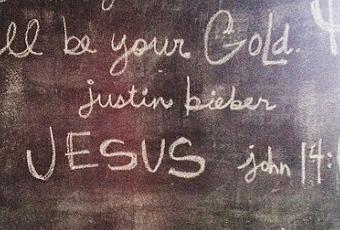 ll be your Gold.
justin bieber
JESUS john 14: